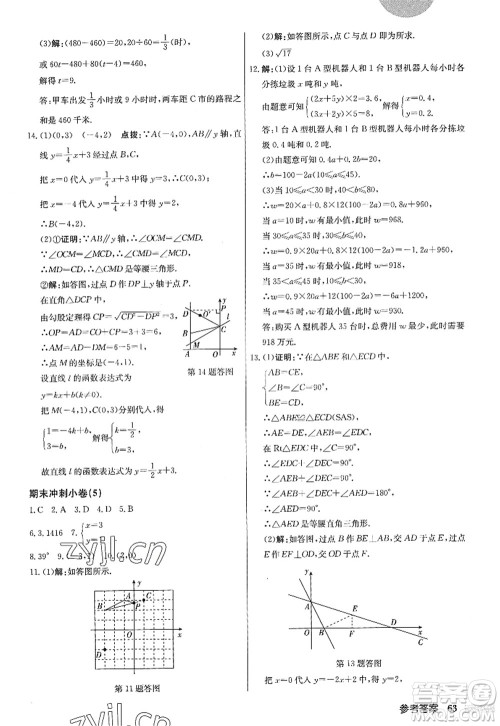 (3)解:(480-460)÷(60-20)=1/3(时),
或 60t-20t+20=480-20,
解得 t=9.
答:甲车出发 1/3 或 9 小时,两车距 C 市的路程之
和是 460 千米.
14.(1)(0,3) (-4,2) 点拨:∵A(-4,0),AB∥y 轴,直
线的函数表达式为 y=1/4x+3,
把 x=0 代入 y=1/4x+3,得 y=3,
∴C(0,3).
把 x=-4 代入 y=1/4x+3,得 y=2,
∴B(-4,2).
(2)①证明:∵AB∥y 轴,∴∠OCM=∠CMD.
∵∠OCM=∠MCD,∴∠CMD=∠MCD,
∴MD=CD,∴△CMD 是等腰三角形.
②解:如答图,过点 D 作 DP⊥y 轴于点 P.
在直角△DCP 中,
由勾股定理得 CP=√(CD²-DP²)=3,
∴OP=AD=CO+CP=3+5=8,
∴AM=AD-DM=8-5=3,
∴点 M 的坐标是(-4,3).
设直线 l 的函数表达式为
y=kx+b(k≠0).
把 M(-4,1),C(0,3)分别代入,得
{1=-4k+b, 3=b, 解得{k=1/2, b=3.
故直线 l 的函数表达式为 y=1/2x+3.
第 14 题答图
期末冲刺小卷(5)
1.C 2.A 3.D 4.D 5.B
6.3.1416 7.{x=3
8.39°
11.(1)解:如答图所示.
第 11 题答图
(2)解:如答图所示.
(3)√17
12.解:(1)设 1 台 A 型机器人和 1 台 B 型机器人每小时各
分拣垃圾 x 吨和 y 吨.
由题意可知{(2x+5y)×2=3.6, (3x+2y)×5=8,
解得{x=0.4, y=0.2.
答:1 台 A 型机器人和 1 台 B 型机器人每小时各分拣垃
圾 0.4 吨和 0.2 吨.
(2)由题意可知 0.4a+0.2b=20,
∴b=100-2a(10≤a≤45).
(3)当 10≤a<30 时,40<b≤80,
∴w=20×a+0.8×12(100-2a)=0.8a+960.
当 a=10 时,w 有最小值,此时 w=968.
当 30≤a≤35 时,30≤b≤40,
∴w=0.9×20a+0.8×12(100-2a)=-1.2a+960.
当 a=35 时,w 有最小值,此时 w=918.
当 35<a≤45 时,10≤b<30,
∴w=0.9×20a+12(100-2a)=-6a+1 200.
当 a=45 时,w 有最小值,此时 w=930.
答:购买 A 型机器人 35 台时,总费用 w 最少,此时需要
918 万元.
13.(1)证明:∵在△ABE 和△ECD 中,
{AB=CE, ∠B=∠C=90°, BE=CD,
∴△ABE≌△ECD(SAS),
∴AE=DE,∠AEB=∠EDC.
在 Rt△EDC 中,∠C=90°,
∴∠EDC+∠DEC=90°.
∴∠AEB+∠DEC=90°.
∵∠AEB+∠DEC+∠AED=180°,
∴∠AED=90°.
∴△AED 是等腰直角三角形.
(2)解:如答图,过点 B 作 BE⊥AB,交 AC 于点 E,过点
E 作 EF⊥OD,交 OD 于点 F.
第 13 题答图
把 y=0 代入 y=-2x+2 中,得 0=-2x+2,解得 x=1,
参考答案 63
zyjl.cn